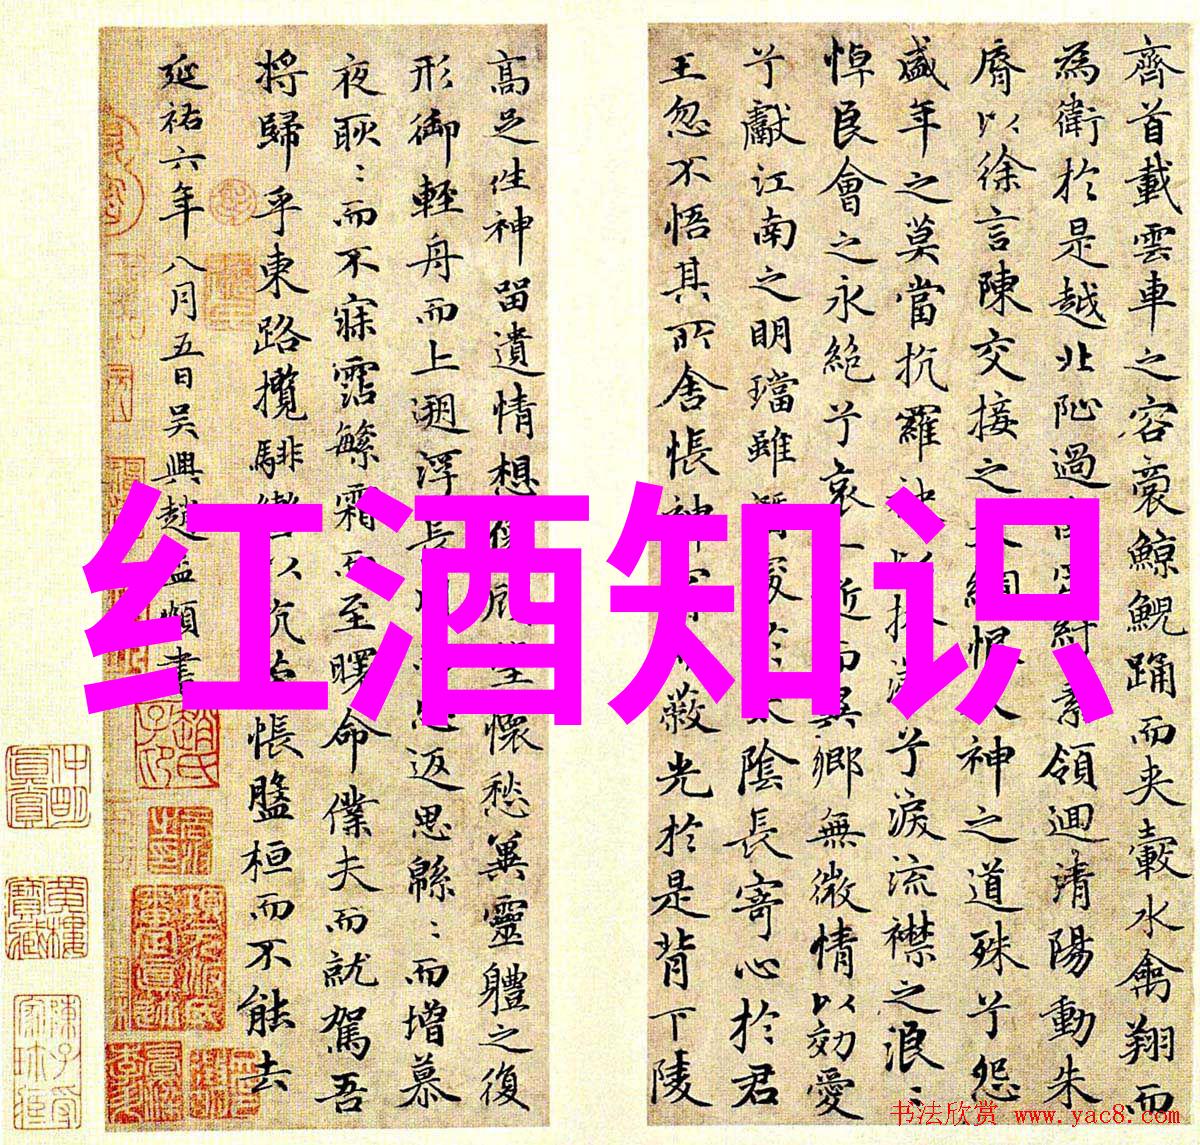 齊首載雲車之容裔鯨鯢踊而夾轂水禽翔而
為衛於是越北沚過素領迴清陽動朱
脣以徐言陳交接之大綱恨人神之道殊兮怨
盛年之莫當抗羅袂以淚兮淚流襟之浪〻
悼良會之永絕兮哀一近而異鄉無微情以効愛
兮獻江南之明璫雖於太陰長寄心於君
王忽不悟其所舍悵神蔽光於是背下陵
高足往神留遺情想懷愁冀靈體之復
形御輕舟而上遡浮長返思緜〻而增慕
夜耿〻而不寐霑繁霜而至曙命僕夫而就駕吾
將歸乎東路攬騑以抗悵盤桓而不能去
延祐六年八月五日吳興趙孟頫書
红酒知识
书法欣赏 www.yac8.com